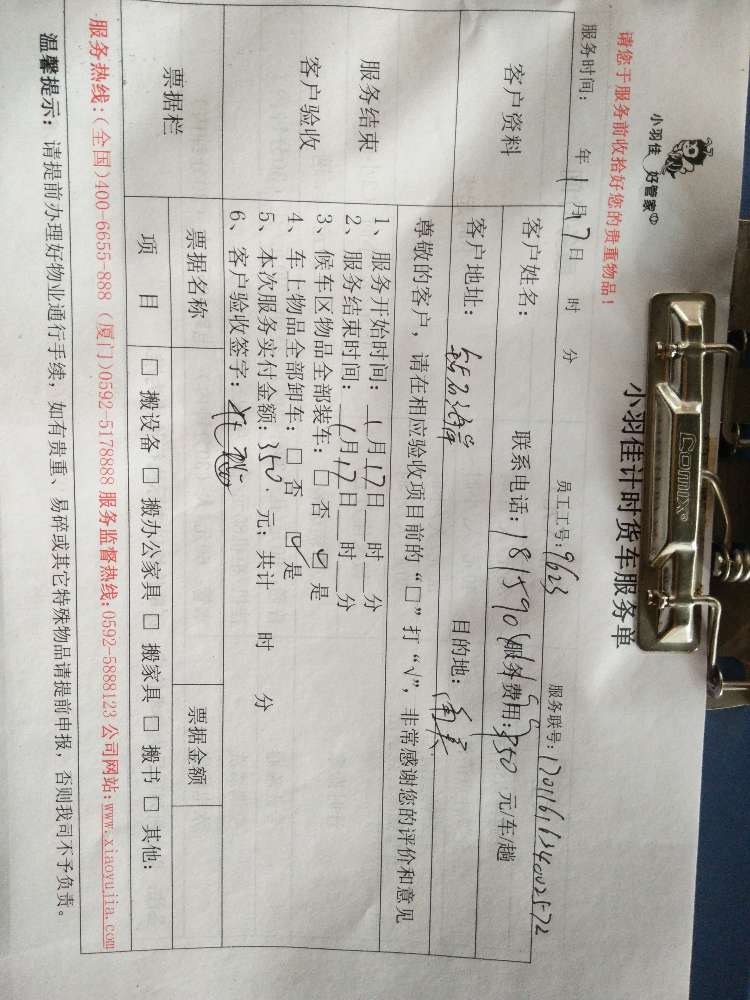 小羽佳 好管家
小羽佳计时货车服务单
Comix
请您于服务前收拾好您的贵重物品！
服务时间： 年 1月17日 时 分 员工工号：9623 服务联号：
客户资料
客户姓名： 联系电话： 服务费用：350 元/车/趟
客户地址： 目的地：
尊敬的客户，请在相应验收项目前的“□”打“√”，非常感谢您的评价和意见
服务结束
客户验收
1、服务开始时间：1月17日 时 分
2、服务结束时间：1月17日 时 分
3、候车区物品全部装车：□ 否 ☑ 是
4、车上物品全部卸车：□ 否 ☑ 是
5、本次服务实付金额：350.元；共计 时 分
6、客户验收签字：
票据栏 票据名称 票据金额
项 目 □ 搬设备 □ 搬办公家具 □ 搬家具 □ 搬书 □ 其他：
服务热线：(全国)400-6655-888 (厦门)0592-5178888 服务监督热线：0592-5888123 公司网站：www.xiaoyujia.com
温馨提示：请提前办理好物业通行手续，如有贵重、易碎或其它特殊物品请提前申报，否则我司不予负责。